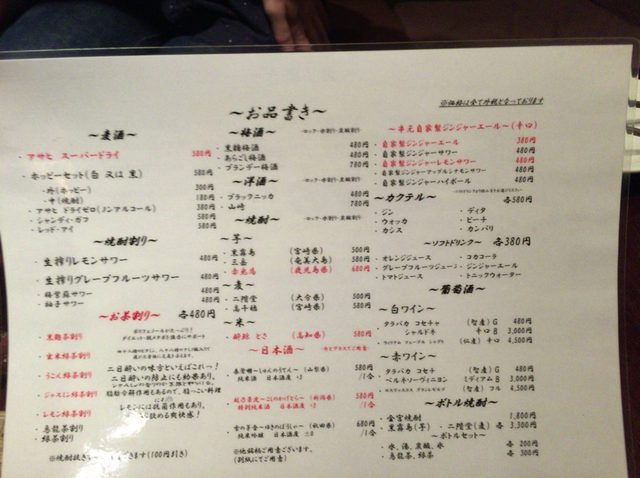 ※価格は全て外税となっております
～お品書き～
～麦酒～
・アサヒ スーパードライ 580円
・ホッピーセット(白 又は 黒) 580円
・外(ホッピー) 300円
・中(焼酎) 180円
・アサヒ ドライゼロ(ノンアルコール) 380円
・シャンディ・ガフ 580円
・レッド・アイ 580円
～焼酎割り～
・生搾りレモンサワー 480円
・生搾りグレープフルーツサワー 480円
・梅宝庵サワー 480円
・柚子サワー 480円
～お茶割り～ 各480円
・黒麹茶割り
・玄米緑茶割り
・うこん茶割り
・ジャスミン緑茶割り
・レモン緑茶割り
・烏龍茶割り
・緑茶割り
二日酔いの味方といえばこれ～!
二日酔いの防止にも効果あり。
レモンには抗菌作用もあり、
～梅酒～ ・ロック・水割り・炭酸割り
・黒糖梅酒 480円
・あらごし梅酒 480円
・ブランデー梅酒 780円
～洋酒～ ・ロック・水割り・炭酸割り
・ブラックニッカ 480円
・山崎 780円
～焼酎～ ・ロック・水割り・炭酸割り
～芋～
・黒霧島 (宮崎県) 500円
・三岳 (奄美大島) 580円
・赤兎馬 (鹿児島県) 680円
～麦～
・二階堂 (大分県) 500円
・高千穂 (宮崎県) 500円
～米～
・酔鯨 とさ (高知県) 580円
～日本酒～
(山梨県) 580円
純米酒 日本酒度 /1合
(新潟県) 580円
特別純米酒 日本酒度 /1合
(秋田県) 680円
純米吟醸 日本酒度 /1合
※他銘柄ご用意ございます。
(別紙にてご用意)
～辛元自家製ジンジャーエール～(辛口)
・自家製ジンジャーエール 380円
・自家製ジンジャーサワー 480円
・自家製ジンジャーレモンサワー 480円
・自家製ジンジャーアップルシナモンサワー 480円
・自家製ジンジャーハイボール 480円
～カクテル～ 各580円
・ジン ・ディタ
・ウォッカ ・ピーチ
・カシス ・カンパリ
～ソフトドリンク～ 各380円
・オレンジジュース ・コカコーラ
・グレープフルーツジュース ・ジンジャーエール
・トマトジュース ・トニックウォーター
～葡萄酒～
～白ワイン～
・タラパカ コセチャ (智産) G 480円
シャルドネ 辛口 B 3,000円
(仏産) 4,500円
～赤ワイン～
・タラパカ コセチャ (智産) G 480円
・ベルネソーヴィニヨン ミディアム B 3,000円
(智産) フル 4,500円
～ボトル焼酎～
・金宮焼酎 1,800円
・黒霧島(芋) ・二階堂(麦) 3,300円
～ボトルセット～
・水、湯、炭酸、氷 各 200円
・烏龍茶、緑茶 各 300円